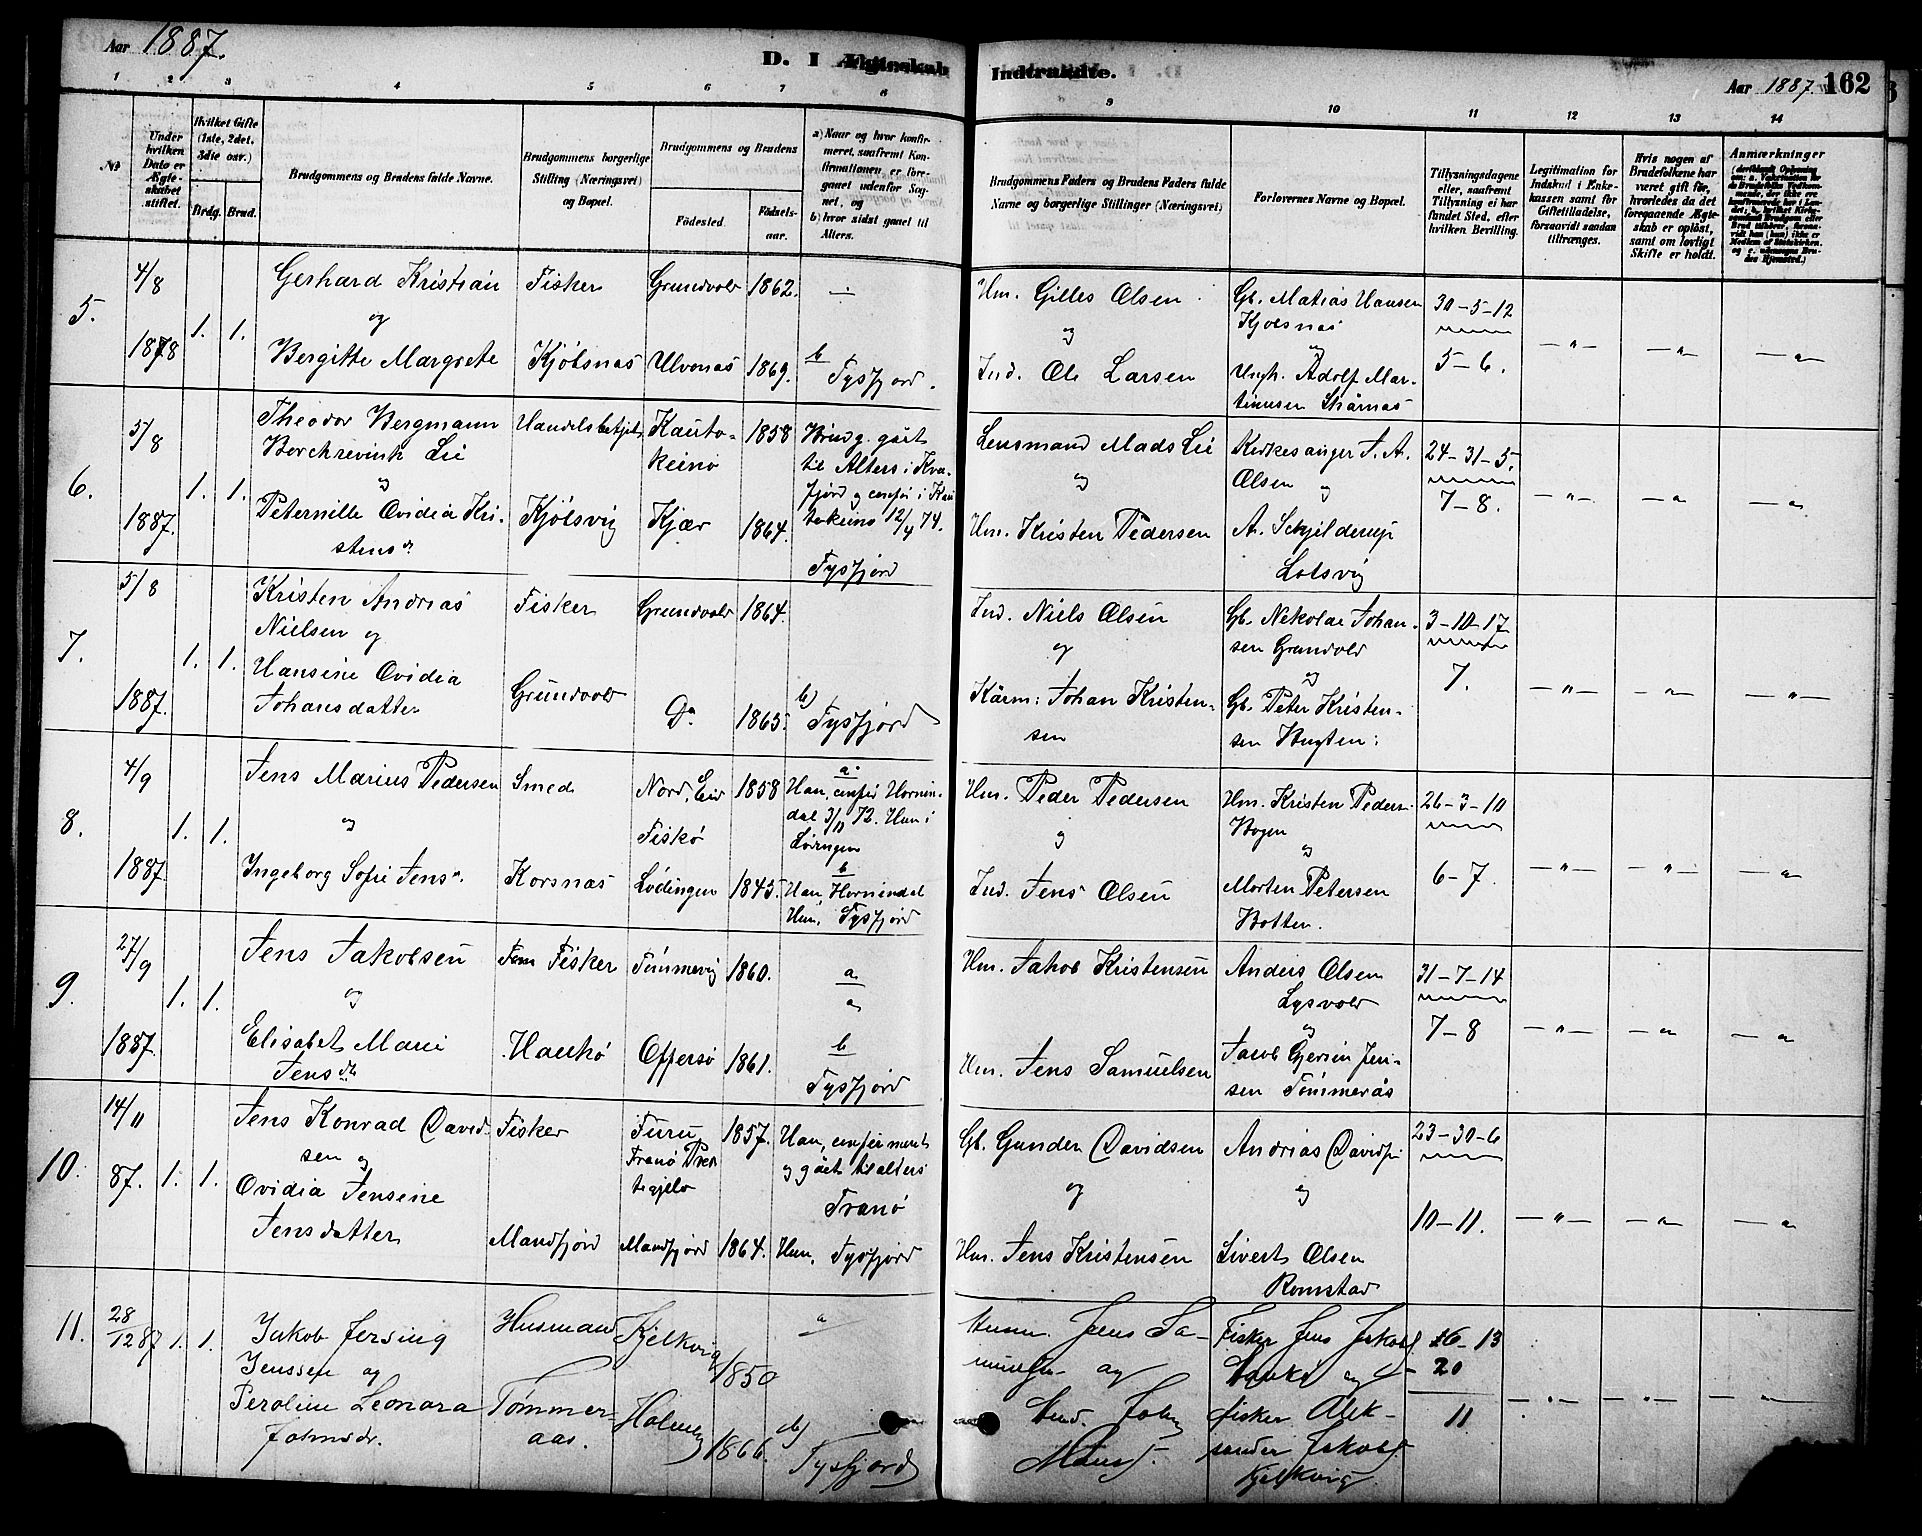 Aar 1887.
D. I Ægteskab Indtraadte.
Aar 1887. 162
1 2 3 4 5 6 7 8 9 10 11 12 13 14
№
Under hvilken Dato er Ægteskabet stiftet.
Hvilket Gifte (1ste, 2det, 3die osv.)
Brdg. Brud.
Brudgommens og Brudens fulde Navne.
Brudgommens borgerlige Stilling (Næringsvei) og Bopæl.
Brudgommens og Brudens
Födested. Födselsaar.
a) Naar og hvor konfirmeret, saafremt Konfirmationen er foregaaet udenfor Sognet, og
b) hvor sidst gaaet til Alters.
Brudgommens Faders og Brudens Faders fulde Navne og borgerlige Stillinger (Næringsvei)
Forlovernes Navne og Bopæl.
Tillysningsdagene eller, saafremt Tillysning ei har fundet Sted, efter hvilken Bevilling.
Legitimation for Indskud i Enkekassen samt for Giftetilladelse, forsaavidt saadan tiltrænges.
Hvis nogen af Brudefolkene har været gift för, hvorledes da det foregaaende Ægteskab er oplöst, samt om lovligt Skifte er holdt.
Anmærkninger
5.
4/8
1878
1. 1.
Gerhard Kristian
og
Bergitte Margrete
Fisker
Kjöbsnas
Grundvold 1862.
Ulvenas 1869.
b
Tysfjord.
Hm. Gilles Olsen
og
Ind. Ole Larsen
Gb. Matias Hansen
Kjöbsnas
og
Ungk. Adolf Martinusen Skarnas
30-5-12
5-6.
6.
5/8
1887.
1. 1.
Theodor Bergmann
Borchrevink Lie
og
Peternille Ovidia Kristensdr
Handelsbetjent
Kjöbsvig
Kautokeino 1858
Kjær 1864.
Brudg. gået
til Alters i Kvafjord
12/4 74.
Tysfjord
Lensmand Mads Lie
og
Hm. Kristen Pedersen
Kirkesanger J. A.
Olsen og
A. Schjelderup
24-31-5.
7-8.
7.
5/8
1887.
1. 1.
Kristen Andrias
Nielsen og
Hansine Ovidia
Johansdatter
Fisker
Grundvold
Grundvold 1864.
Do 1865.
b)
Tysfjord
Ind. Niels Olsen
og
Kårm: Johan Kristensen
Gb. Nekolai Johansen Grundvold
og
Gb. Peter Kristensen Bugten:
3-10-17
7.
8.
4/9
1887
1. 1.
Jens Marius Pedersen
og
Ingeborg Sofie Jensdr.
Smed
Korsnas
Nord. Eid 1858
Lödingen 1845.
a.
Han, confir. Hornindal 3/11 72. Hun i
b
Han, Hornindal
Hun, Tysfjord
Hm. Peder Pedersen
og
Ind. Jens Olsen
Hm. Kristen Peders.
og
Morten Petersen
Botten.
26-3-10
6-7.
9.
27/9
1887.
1. 1.
Jens Jakobsen
og
Elisabet Marie
Jensdtr
Fisker
Haukö
Tömmevig 1860.
Offersö 1861.
a
b
Tysfjord
Hm. Jakob Kristensen
Hm. Jens Samuelsen
Anders Olsen
Lysvold
og
Jacob Gjersin Jensen Tömmerås
31-7-14
7-8
10.
14/11
87.
1. 1.
Jens Konrad Davidsen og
Ovidia Jensine
Jensdatter
Fisker
Mandfjord
Furu 1857.
Tranö
Mandfjord 1864.
Han, confirmeret
og gået til alters
Tranö
Hun, Tysfjord
Gb. Gunder Davidsen
og
Hm. Jens Kristensen
Andrias Davids.
og
Sivert Olsen
Romstad
23-30-6
10-11.
11.
28/12 87
1. 1.
Jakob Jersing
Jenssen og
Peroline Leonora
Johnsdr.
Husmand
Tömmeraas.
Kjelkvig 1850
Holmen 1866.
a
b)
Tysfjord
Husm. Jens Samuels. og
Ind. John
Mons.
Fisker Jens Jakobs.
Haukö og
fisker Aleksander Jakobs.
Kjelkvig
16-13
20
11